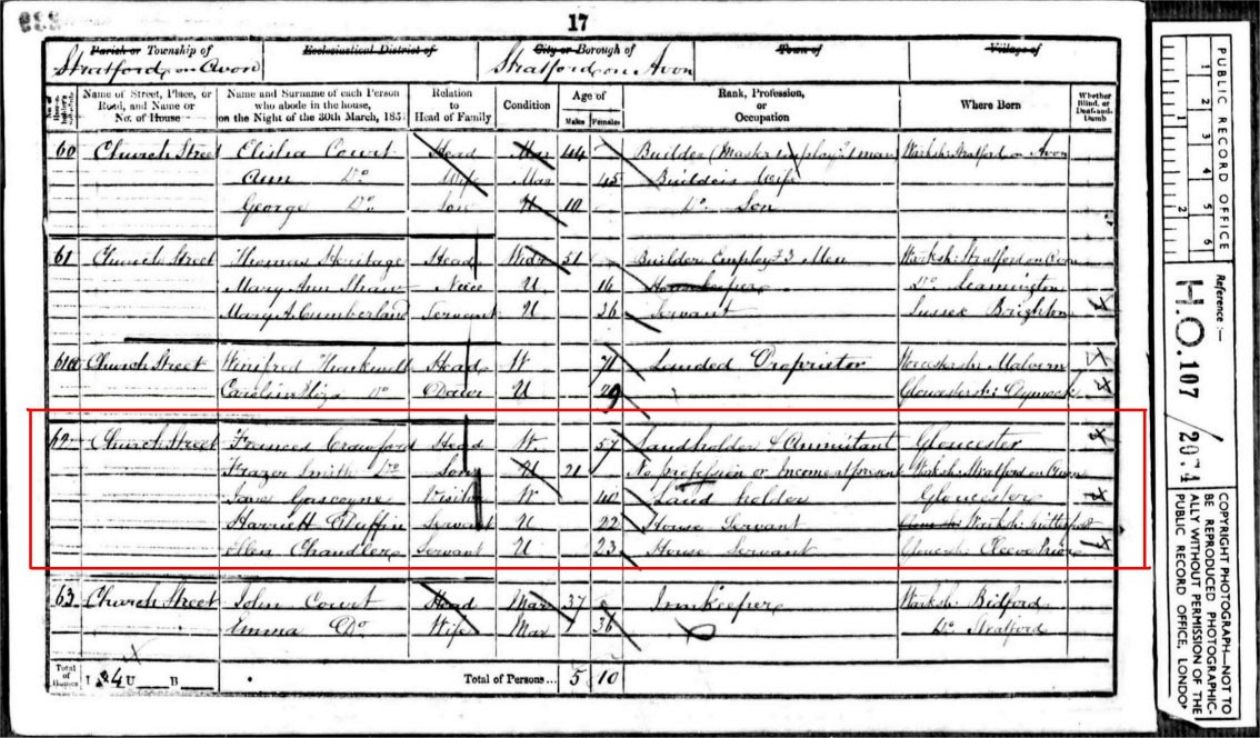 17
Parish or Township of Ecclesiastical District of City or Borough of Town of Village of
Stratford on Avon Stratford on Avon
No. of House Name of Street, Place, or Road, and Name or No. of House Name and Surname of each Person who abode in the house, on the Night of the 30th March, 185 Relation to Head of Family Condition Age of Males Females Rank, Profession, or Occupation Where Born Whether Blind, or Deaf-and-Dumb
60 Church Street Elisha Court Head Mar 44 Builder (Master employg 1 man Warksh: Stratford on Avon
Ann Do Wife Mar 45 Builders Wife
George Do Son U 10 Do Son
61 Church Street Thomas Heritage Head Widr 51 Builder Employg 3 Men Warksh: Stratford on Avon
Mary Ann Shaw Niece U 16 Housekeeper Do Leamington
Mary A. Cumberland Servant U 26 Servant Sussex Brighton
61a Church Street Winifred Head W 71 Landed Proprietor Worcestersh: Malvern
Caroline Eliza Do Daur U 29 Dymock
62 Church Street Frances Crawford Head W. 57 Landholder & Annuitant Gloucester
Frazer Smith Do Son U 21 No profession or Income at present Warksh: Stratford on Avon
Jane Gascoyne Visitor W 40 Land holder Gloucester
Harriett Servant U 22 House Servant Warksh:
Ellen Chandler Servant U 23 House Servant Cleeve Prior
63 Church Street John Court Head Mar 37 Innkeeper Warksh: Bidford
Emma Do Wife Mar 36 Do Stratford
Total of Houses I 4 U B Total of Persons... 5 10
PUBLIC RECORD OFFICE
1 2 3 4 5 6
1 2
Reference :-
H.O. 107 / 2074
COPYRIGHT PHOTOGRAPH—NOT TO
BE REPRODUCED PHOTOGRAPHIC-
ALLY WITHOUT PERMISSION OF THE
PUBLIC RECORD OFFICE, LONDON